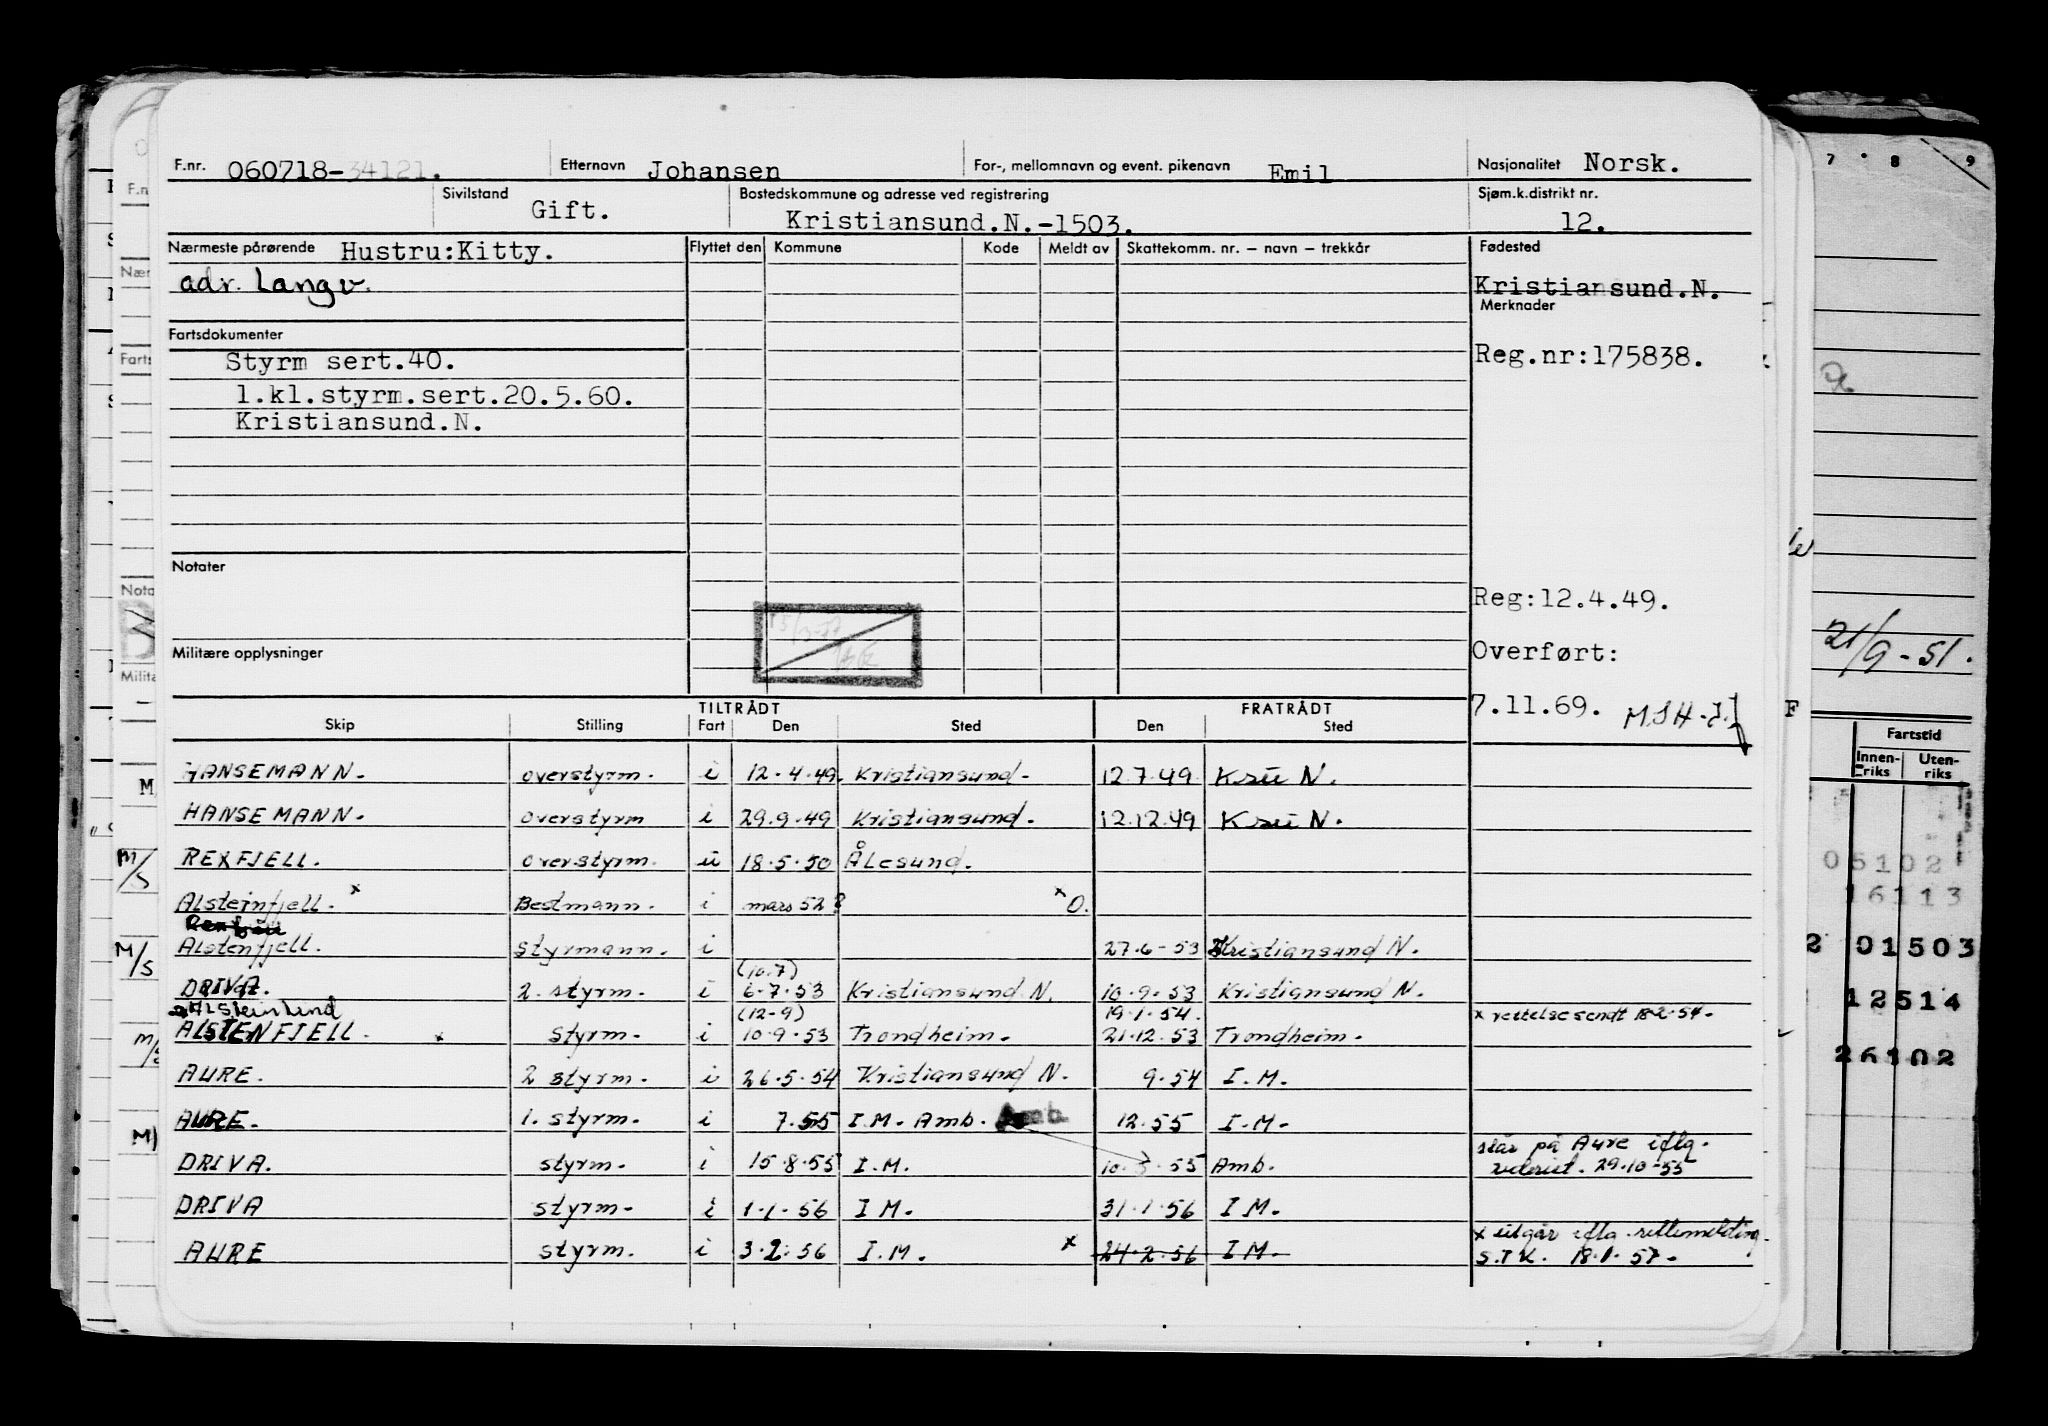 F.nr. 060718-34121. Etternavn Johansen For-, mellomnavn og event. pikenavn Emil Nasjonalitet Norsk.
Sivilstand Gift. Bostedskommune og adresse ved registrering Kristiansund.N.-1503. Sjøm.k.distrikt nr. 12.
Nærmeste pårørende Hustru:Kitty. Flyttet den Kommune Kode Meldt av Skattekomm. nr. – navn – trekkår Fødested
adr. Langv. Kristiansund.N.
Merknader
Fartsdokumenter
Styrm sert.40. Reg.nr:175838.
1.kl.styrm.sert.20.5.60.
Kristiansund.N.
Notater
Reg:12.4.49.
Militære opplysninger Overført:
7.11.69.
TILTRÅDT FRATRÅDT
Skip Stilling Fart Den Sted Den Sted
HANSEMANN. overstyrm. i 12.4.49. Kristiansund. 12.7.49 Ksu N.
HANSEMANN. overstyrm i 29.9.49 Kristiansund. 12.12.49 Ksu N.
REXFJELL. overstyrm. u 18.5.50 Ålesund.
Alsteinfjell. x Bestmann. i mars 52? x O.
Alstenfjell. styrmann. i 27.6-53 Kristiansund N.
(10.7)
DRIVA. 2. styrm. i 6.7.53 Kristiansund N. 10.9.53 Kristiansund N.
Alsteinlind (12-9) 19.1.54. x rettelse sendt 18-2.54.
ALSTENFJELL. x styrm. i 10.9.53 Trondheim. 21.12.53 Trondheim.
AURE. 2 styrm. i 26.5.54 Kristiansund N. 9.54 I.M.
AURE. 1. styrm. i 7.55 I.M. Amb. Amb. 12.55 I.M.
står på Aure iflg.
DRIVA. styrm. i 15.8.55 I.M. 10.3.55 Amb. rederiet. 29.10-55
DRIVA styrm. i 1.1.56 I M. 31.1.56 I M.
x utgår iflg. rettemelding
AURE styrm. i 3.2.56 I.M. x 24.2.56 I M. S.T.K. 18.1.57.
7 8 9
21/9-51.
Fartstid
Innenriks Utenriks
05102
16113
2 01503
12514
26102
M/S
M/S